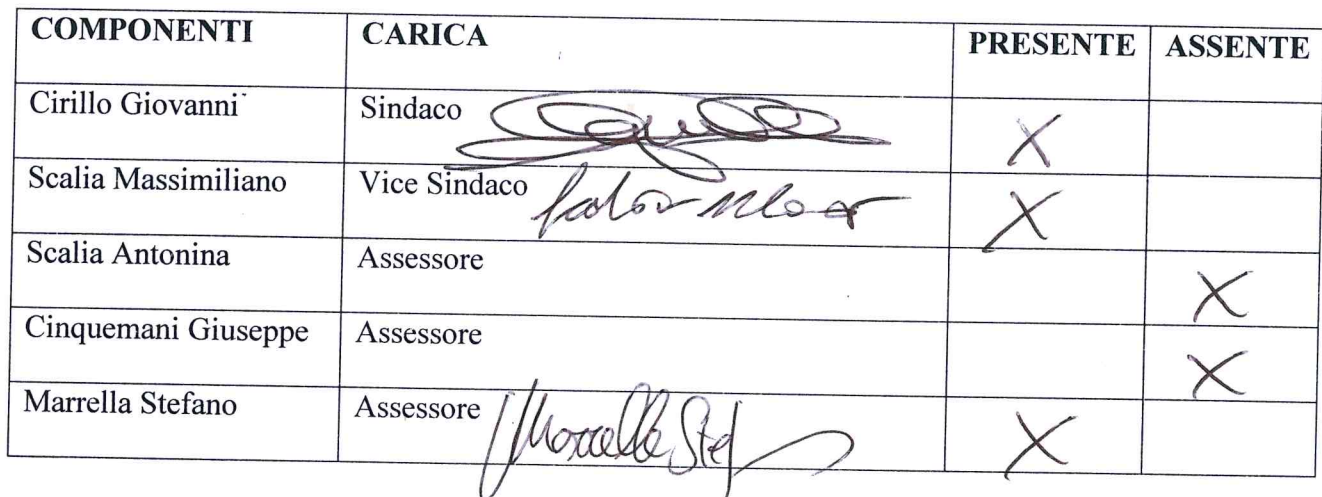 COMPONENTI CARICA PRESENTE ASSENTE
Cirillo Giovanni Sindaco X
Scalia Massimiliano Vice Sindaco X
Scalia Antonina Assessore X
Cinquemani Giuseppe Assessore X
Marrella Stefano Assessore Marrella Stef X